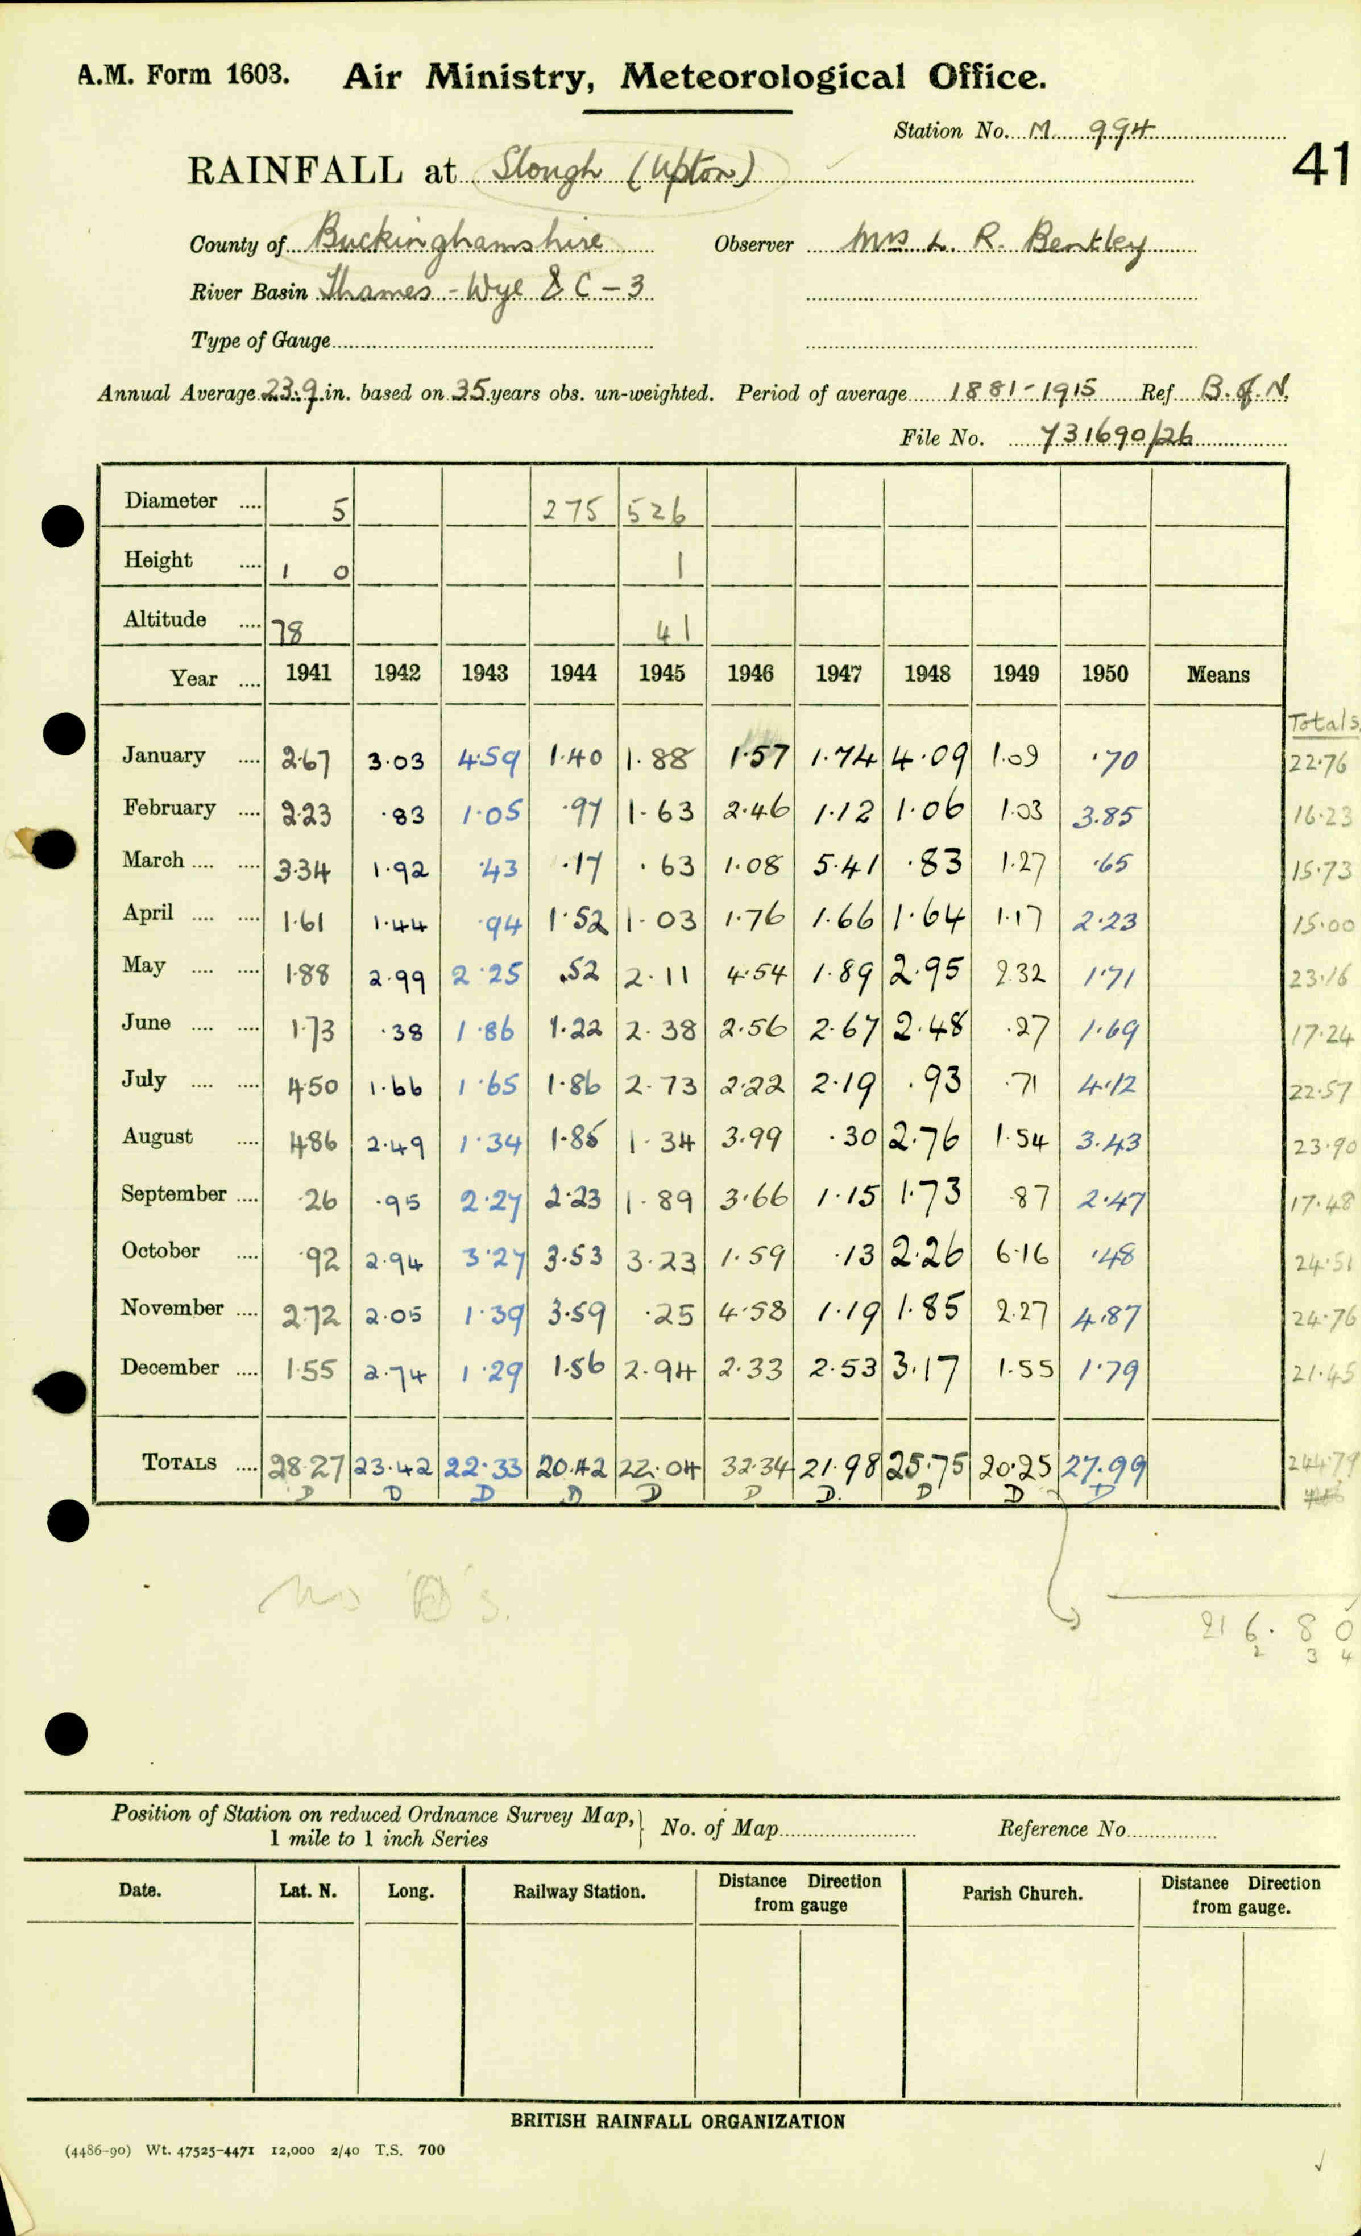 A.M. Form 1603. Air Ministry, Meteorological Office.
Station No. M 994
41
RAINFALL at Slough (Upton)
County of Buckinghamshire Observer Mrs L. R. Bentley
River Basin Thames - Wye & C - 3
Type of Gauge
Annual Average 23.9 in. based on 35 years obs. un-weighted. Period of average 1881-1915 Ref B. of N.
File No. 731690/26
Diameter .... 5 275 526
Height .... 1 0 1
Altitude .... 78 41
Year .... 1941 1942 1943 1944 1945 1946 1947 1948 1949 1950 Means
Totals
January .... 2.67 3.03 4.59 1.40 1.88 1.57 1.74 4.09 1.09 .70 22.76
February .... 2.23 .83 1.05 .97 1.63 2.46 1.12 1.06 1.03 3.85 16.23
March .... .... 3.34 1.92 .43 .17 .63 1.08 5.41 .83 1.27 .65 15.73
April .... .... 1.61 1.44 .94 1.52 1.03 1.76 1.66 1.64 1.17 2.23 15.00
May .... .... 1.88 2.99 2.25 .52 2.11 4.54 1.89 2.95 2.32 1.71 23.16
June .... .... 1.73 .38 1.86 1.22 2.38 2.56 2.67 2.48 .27 1.69 17.24
July .... .... 4.50 1.66 1.65 1.86 2.73 2.22 2.19 .93 .71 4.12 22.57
August .... 4.86 2.49 1.34 1.85 1.34 3.99 .30 2.76 1.54 3.43 23.90
September .... .26 .95 2.27 2.23 1.89 3.66 1.15 1.73 .87 2.47 17.48
October .... .92 2.94 3.27 3.53 3.23 1.59 .13 2.26 6.16 .48 24.51
November .... 2.72 2.05 1.39 3.59 .25 4.58 1.19 1.85 2.27 4.87 24.76
December .... 1.55 2.74 1.29 1.56 2.94 2.33 2.53 3.17 1.55 1.79 21.45
TOTALS .... 28.27 23.42 22.33 20.42 22.04 32.34 21.98 25.75 20.25 27.99 244.79
D D D D D D D. D D D
no 'D's.
216.80
2 3 4
Position of Station on reduced Ordnance Survey Map, } No. of Map Reference No.
1 mile to 1 inch Series
Date. Lat. N. Long. Railway Station. Distance from gauge Direction Parish Church. Distance Direction from gauge.
BRITISH RAINFALL ORGANIZATION
(4486-90) Wt. 47525-4471 12,000 2/40 T.S. 700